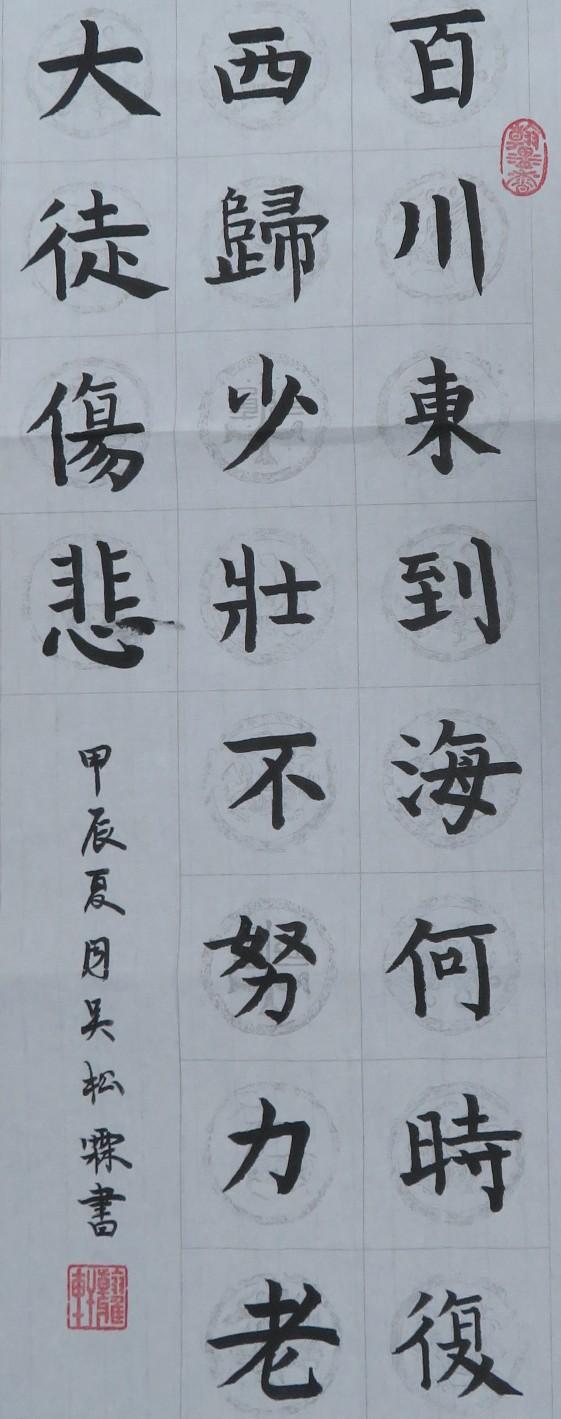 百川東到海何時復
西歸少壯不努力老
大徒傷悲
甲辰夏月吳松霖書
翰墨香